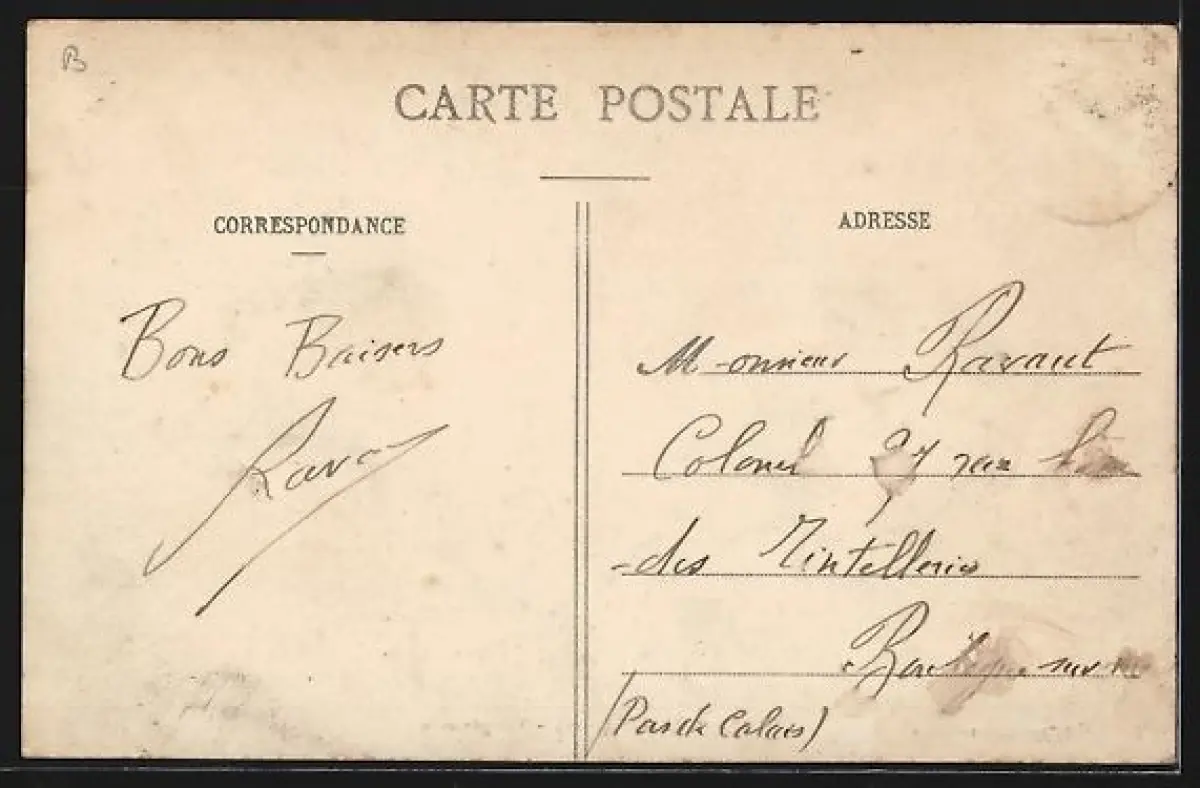 B
CARTE POSTALE
CORRESPONDANCE
Bons Baisers
ADRESSE
Monsieur Ravaut
Colonel 27 rue
des Tintelleries
Boulogne sur
(Pas de Calais)